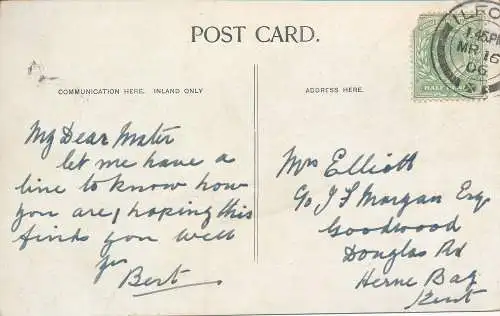 POST CARD.
COMMUNICATION HERE. INLAND ONLY
ADDRESS HERE.
1.45PM
MR 16
06
HALF
My Dear Mater
let me have a
line to know how
you are, hoping this
finds you well
Bert
Mrs Elliott
c/o J F Morgan Esq
Goodwood
Douglas Rd
Herne Bay
Kent